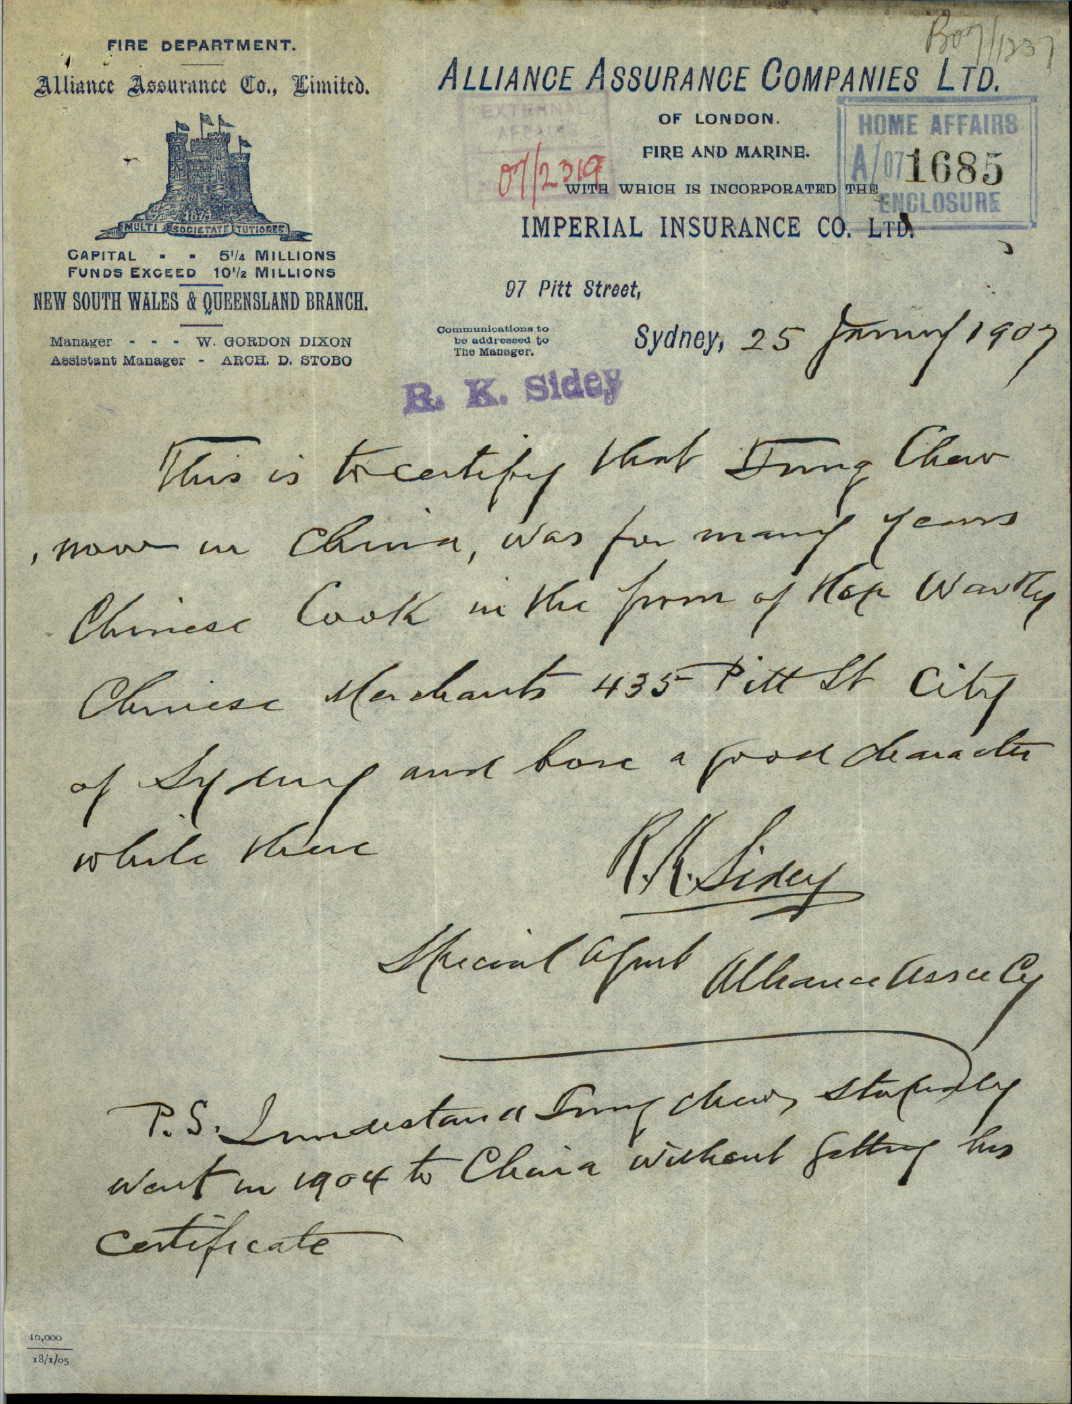 B07/1237
FIRE DEPARTMENT.
Alliance Assurance Co., Limited.
1824
MULTI SOCIETATE TUTIORES
CAPITAL - - 5 1/4 MILLIONS
FUNDS EXCEED 10 1/2 MILLIONS
NEW SOUTH WALES & QUEENSLAND BRANCH.
Manager - - - W. GORDON DIXON
Assistant Manager - ARCH. D. STOBO
ALLIANCE ASSURANCE COMPANIES LTD.
OF LONDON.
FIRE AND MARINE.
WITH WHICH IS INCORPORATED THE
IMPERIAL INSURANCE CO. LTD.
EXTERNAL
AFFAIRS
07/2319
HOME AFFAIRS
A/07 1685
ENCLOSURE
97 Pitt Street,
Communications to
be addressed to
The Manager.
Sydney, 25 January 1907
R. K. Sidey
This is to certify that Fung Chew
now in China, was for many years
Chinese Cook in the firm of Hop
Chinese Merchants 435 Pitt St City
of Sydney and bore a good character
while there
R. K. Sidey
Special Agent Alliance Assce Cy
P.S. I understand Fung chew, stupidly
went in 1904 to China without getting his
certificate
10,000
18/1/05